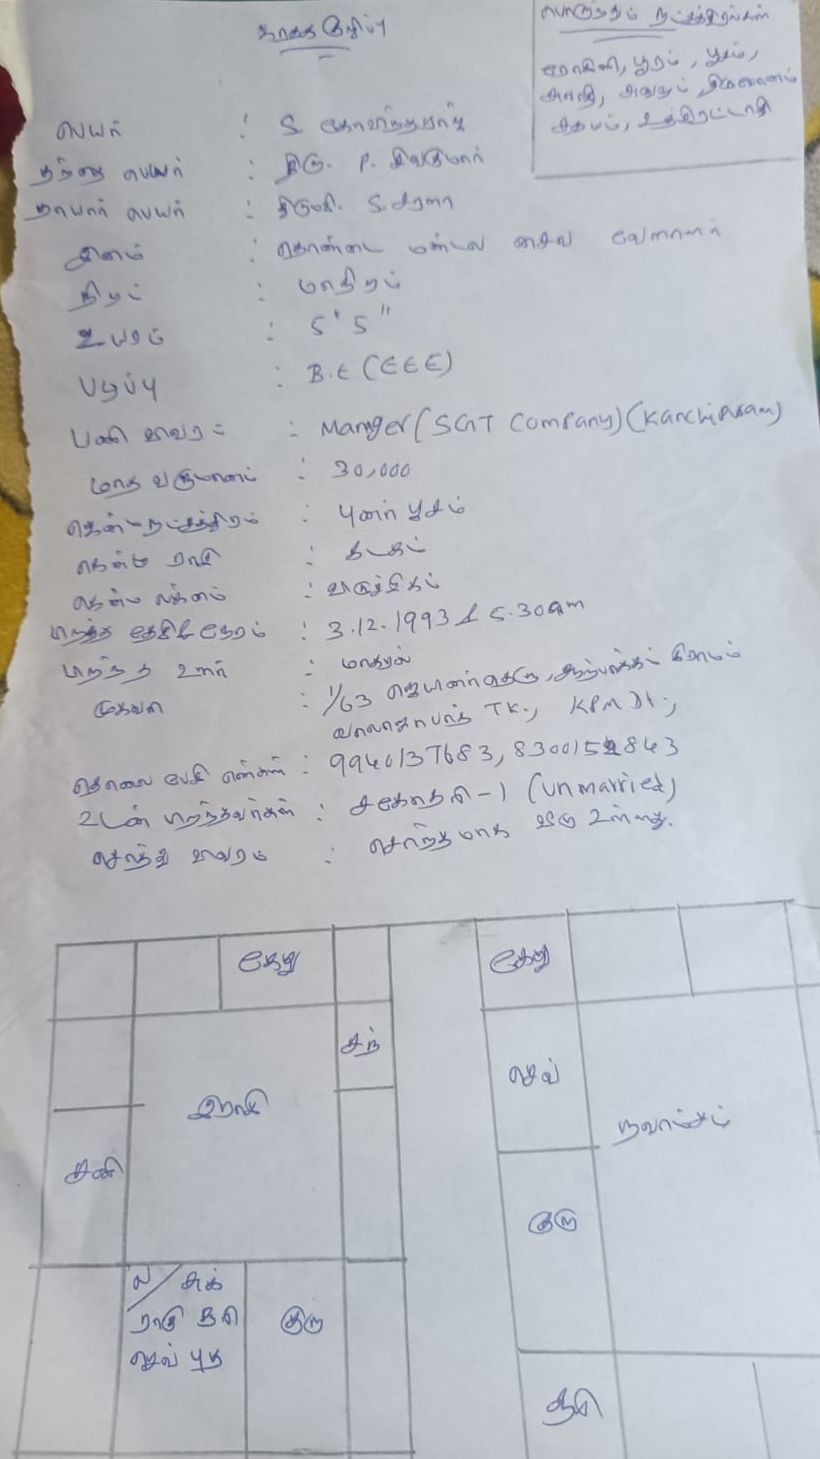 ஜாதக குறிப்பு
பொருந்தும் நட்சத்திரங்கள்
ரோகிணி, பூரம், பூசம்,
சுவாதி, அனுஷம், திருவோணம்
சதயம், உத்திரட்டாதி
பெயர் : S.
தந்தை பெயர் : திரு. P. சிவகுமார்
தாயார் பெயர் : திருமதி. S. சரளா
இனம் : தொண்டை மண்டல சைவ வேளாளர்
நிறம் : மாநிறம்
உயரம் : 5' 5"
படிப்பு : B.E (EEE)
பணி விவரம் : Manger (SGT Company) (Kanchipuram)
மாத வருமானம் : 30,000
ஜென்ம நட்சத்திரம் : புனர் பூசம்
ஜென்ம ராசி : கடகம்
ஜென்ம லக்னம் : விருச்சிகம்
பிறந்த தேதி & நேரம் : 3.12.1993 & 5.30am
பிறந்த ஊர் : மாகறல்
முகவரி : 1/63 கிராமம்
வாலாஜாபாத் TK., KPM Dt.,
தொலை பேசி எண்கள் : 9940137683, 8300152843
உடன் பிறந்தவர்கள் : சகோதரி - 1 (unmarried)
சொத்து விவரம் : சொந்தமாக வீடு உள்ளது.
கேது
சந்
இராசி
சனி
ல/ சுக்
ராகு சூரி
செவ் புத
குரு
கேது
செவ்
நவாம்சம்
குரு
சூரி